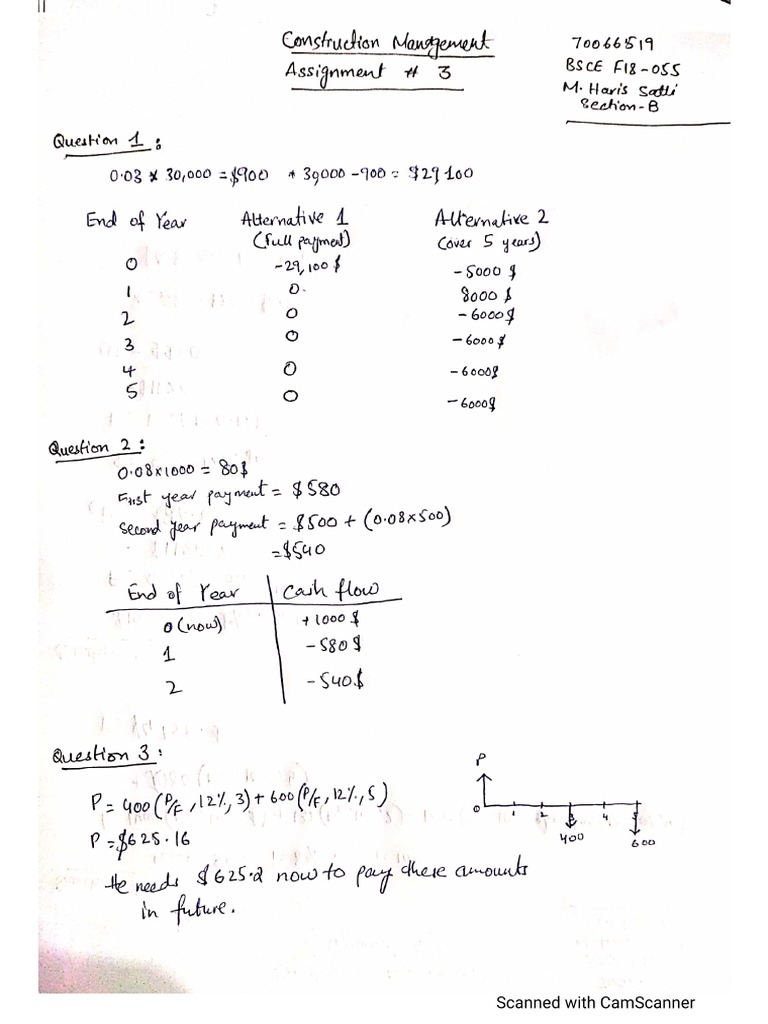 Construction Management
Assignment # 3
70066519
BSCE F18-055
M. Haris Satti
Section-B
Question 1 :
0.03 * 30,000 = $900 * 30000 - 900 = $29100
End of Year Alternative 1 Alternative 2
(full payment) (over 5 years)
0 -29,100 $ -5000 $
1 0. 8000 $
2 0 -6000 $
3 0 -6000 $
4 0 -6000 $
5 0 -6000 $
Question 2 :
0.08x1000 = 80$
First year payment = $580
Second year payment = $500 + (0.08x500)
= $540
End of Year Cash flow
0 (now) +1000 $
1 -580 $
2 -540 $
Question 3 :
P = 400 (P/F, 12%, 3) + 600 (P/F, 12%, 5)
P = $625.16
He needs $625.2 now to pay these amounts
in future.
P
0 1 2 3 4 5
400 600
Scanned with CamScanner